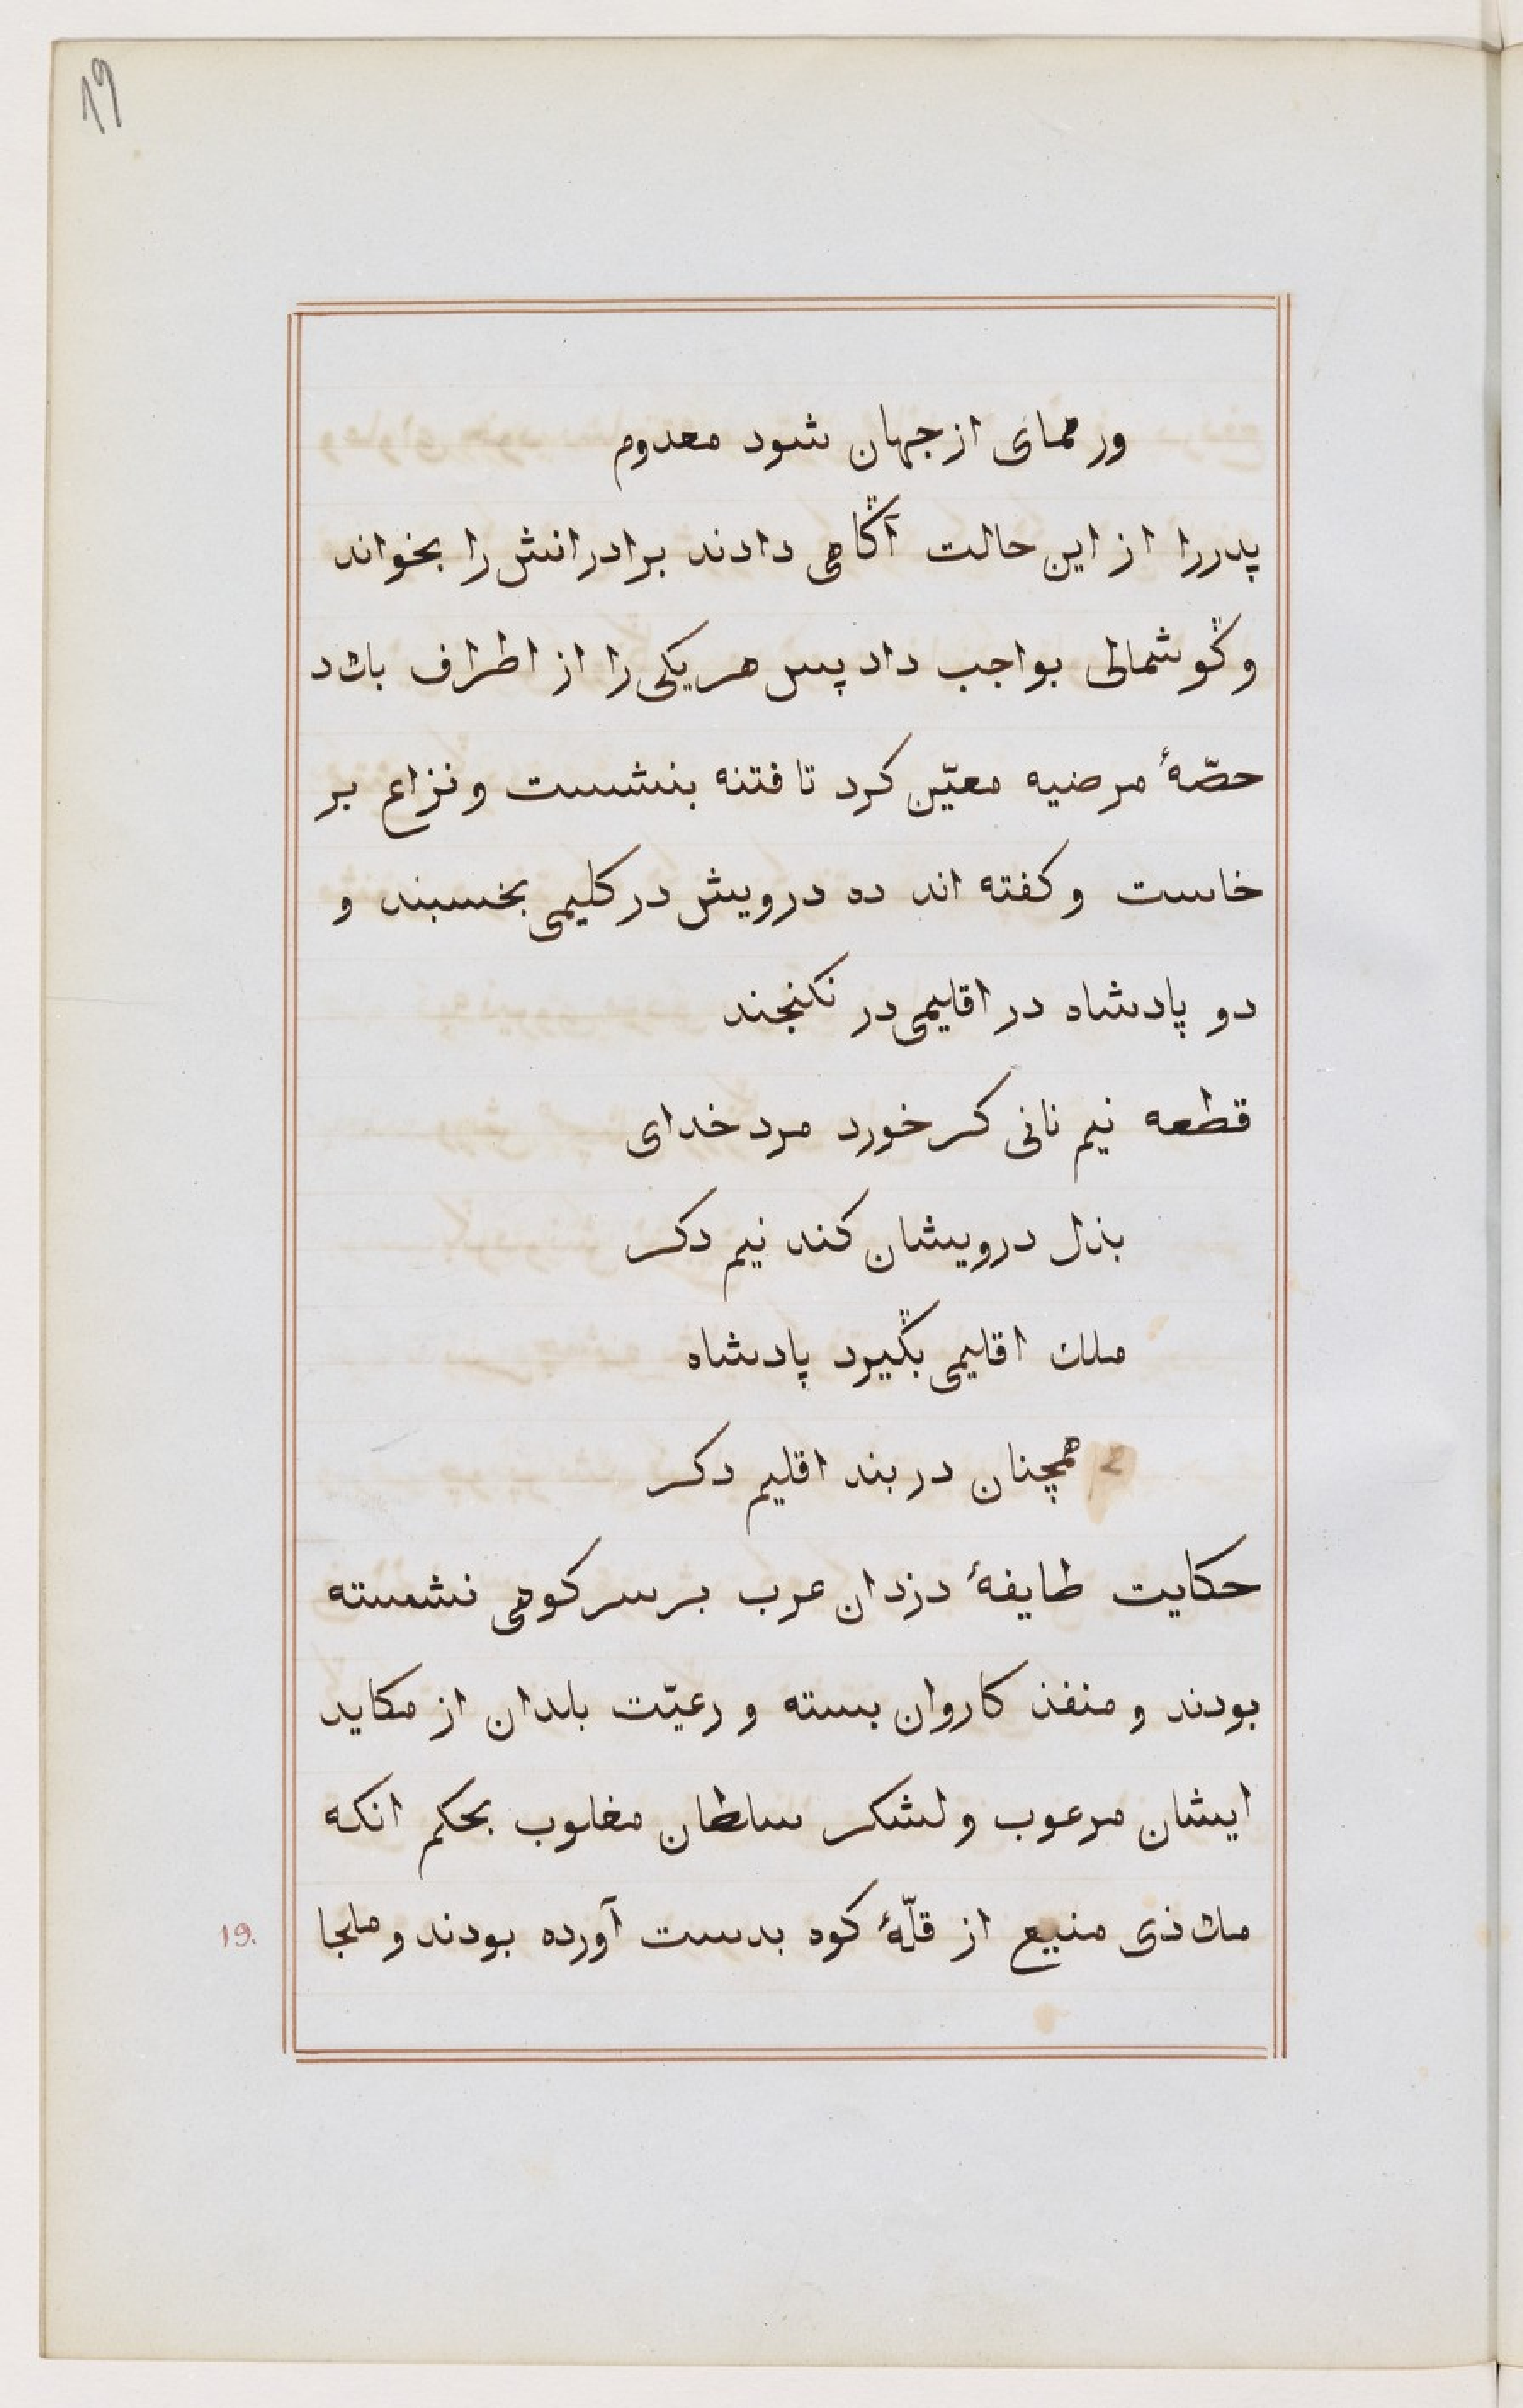 19
ور همای از جهان شود معدوم
پدر را از این حالت آگاهی دادند برادرانش را بخواند
و گوشمالی بواجب داد پس هر یکی را از اطراف بلاد
حصّهٔ مرضیه معیّن کرد تا فتنه بنشست و نزاع بر
خاست و کفته اند ده درویش در کلیمی بخسبند و
دو پادشاه در اقلیمی در نکنجند
قطعه نیم نانی کر خورد مرد خدای
بذل درویشان کند نیم دکر
ملك اقلیمی بگیرد پادشاه
همچنان در بند اقلیم دکر
حکایت طایفهٔ دزدان عرب بر سر کوهی نشسته
بودند و منفذ کاروان بسته و رعیّت بلدان از مکاید
ایشان مرعوب و لشکر سلطان مغلوب بحکم انکه
ملاذی منیع از قلّهٔ کوه بدست آورده بودند و ملجا
19.